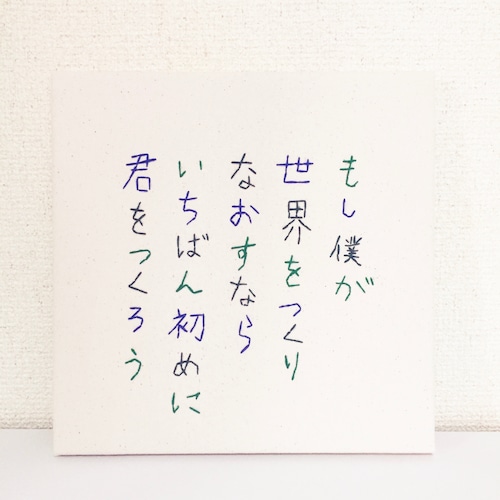 もし僕が
世界をつくり
なおすなら
いちばん初めに
君をつくろう